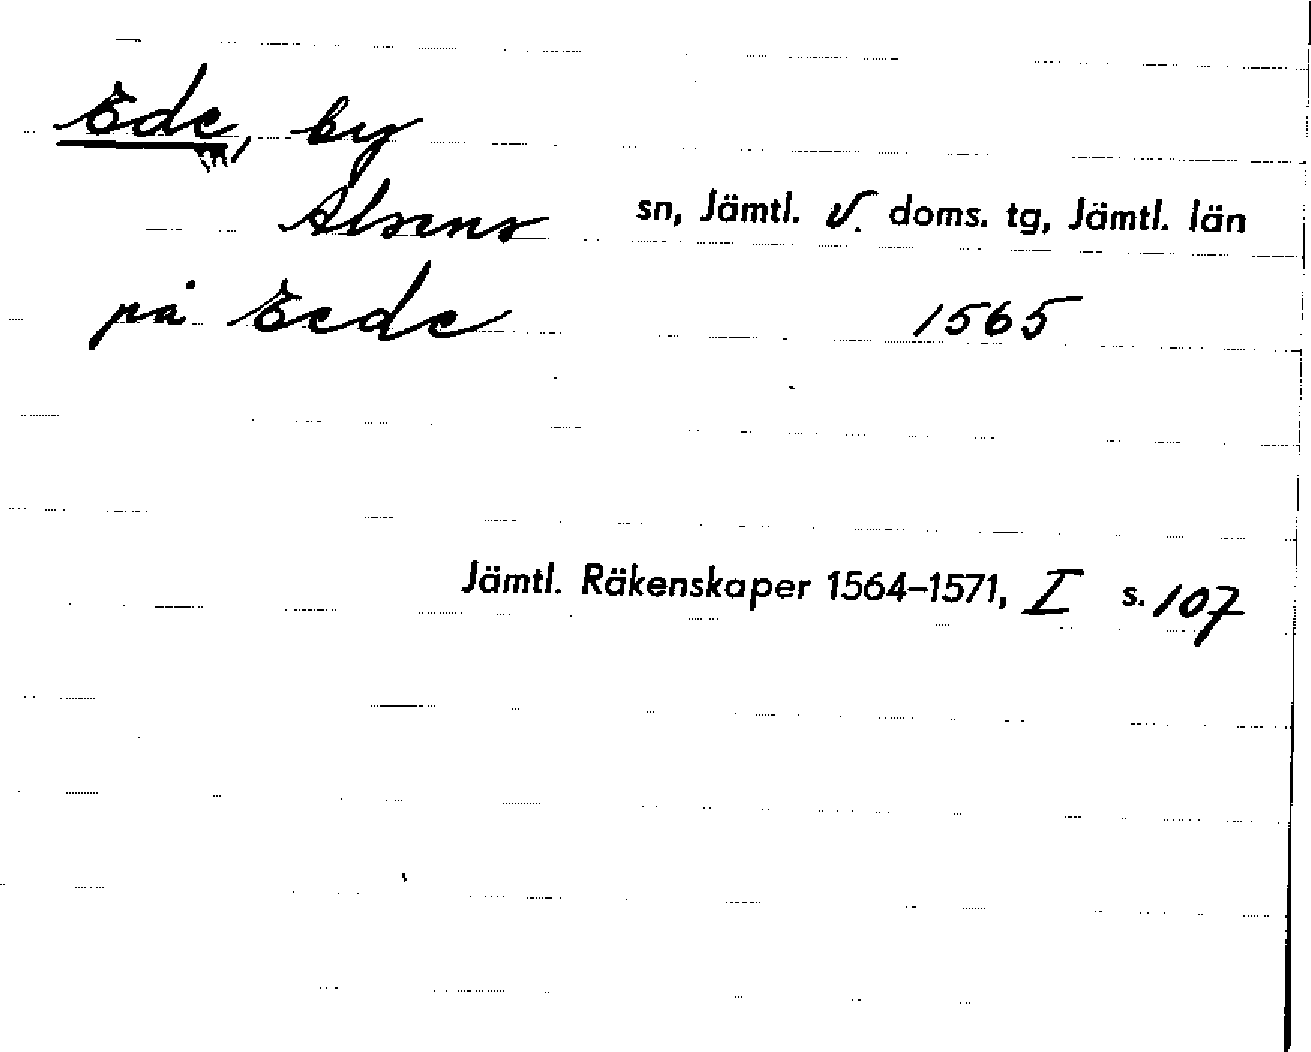 Ede, by
Alsens sn, Jämtl. V. doms. tg, Jämtl. län
på Eede 1565
Jämtl. Räkenskaper 1564–1571, I s. 107